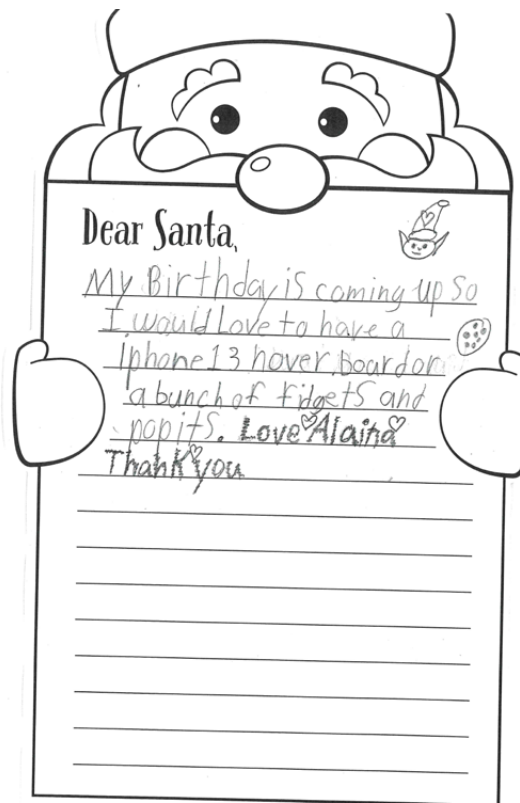 Dear Santa,
My Birthday is coming up so
I would Love to have a
Iphone 13 hover Board or
a bunch of fidgets and
pop its. Love Alaina
Thank you